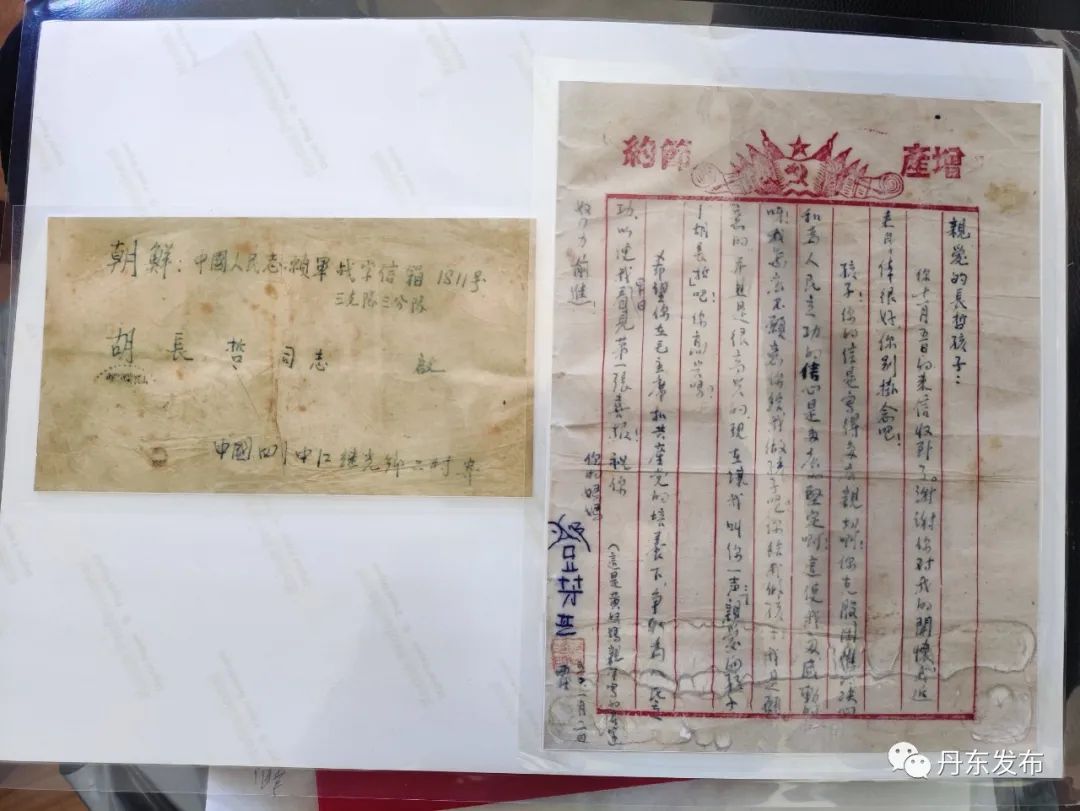 朝鮮：中國人民志願軍战字信箱1811号
三支隊三分隊
胡長哲同志 啟
中國四川中江继光鄉
增產 節約
親愛的長哲孩子：
你十月五日的来信收到了。謝謝你对我的關懷，我近
来身体很好，你別掛念吧！
孩子！你的信是寫得多么親切啊！你克服困難的决心
和為人民立功的信心是多么的堅定啊！這使我多感動的
呀！我怎么不願意你给我做孩子呢？你给我做孩子，我是願
意的，並且是很高兴的，现在讓我叫你一声：「親愛的孩子
胡長哲」吧！你高兴嗎？
希望你在毛主席和共產党的培養下争取為人民立
功，以便我看見第一張喜报！祝你
努力前進！
你的媽媽
鄧芳芝
（這是黄妈妈親手写的
月二日
丹东发布